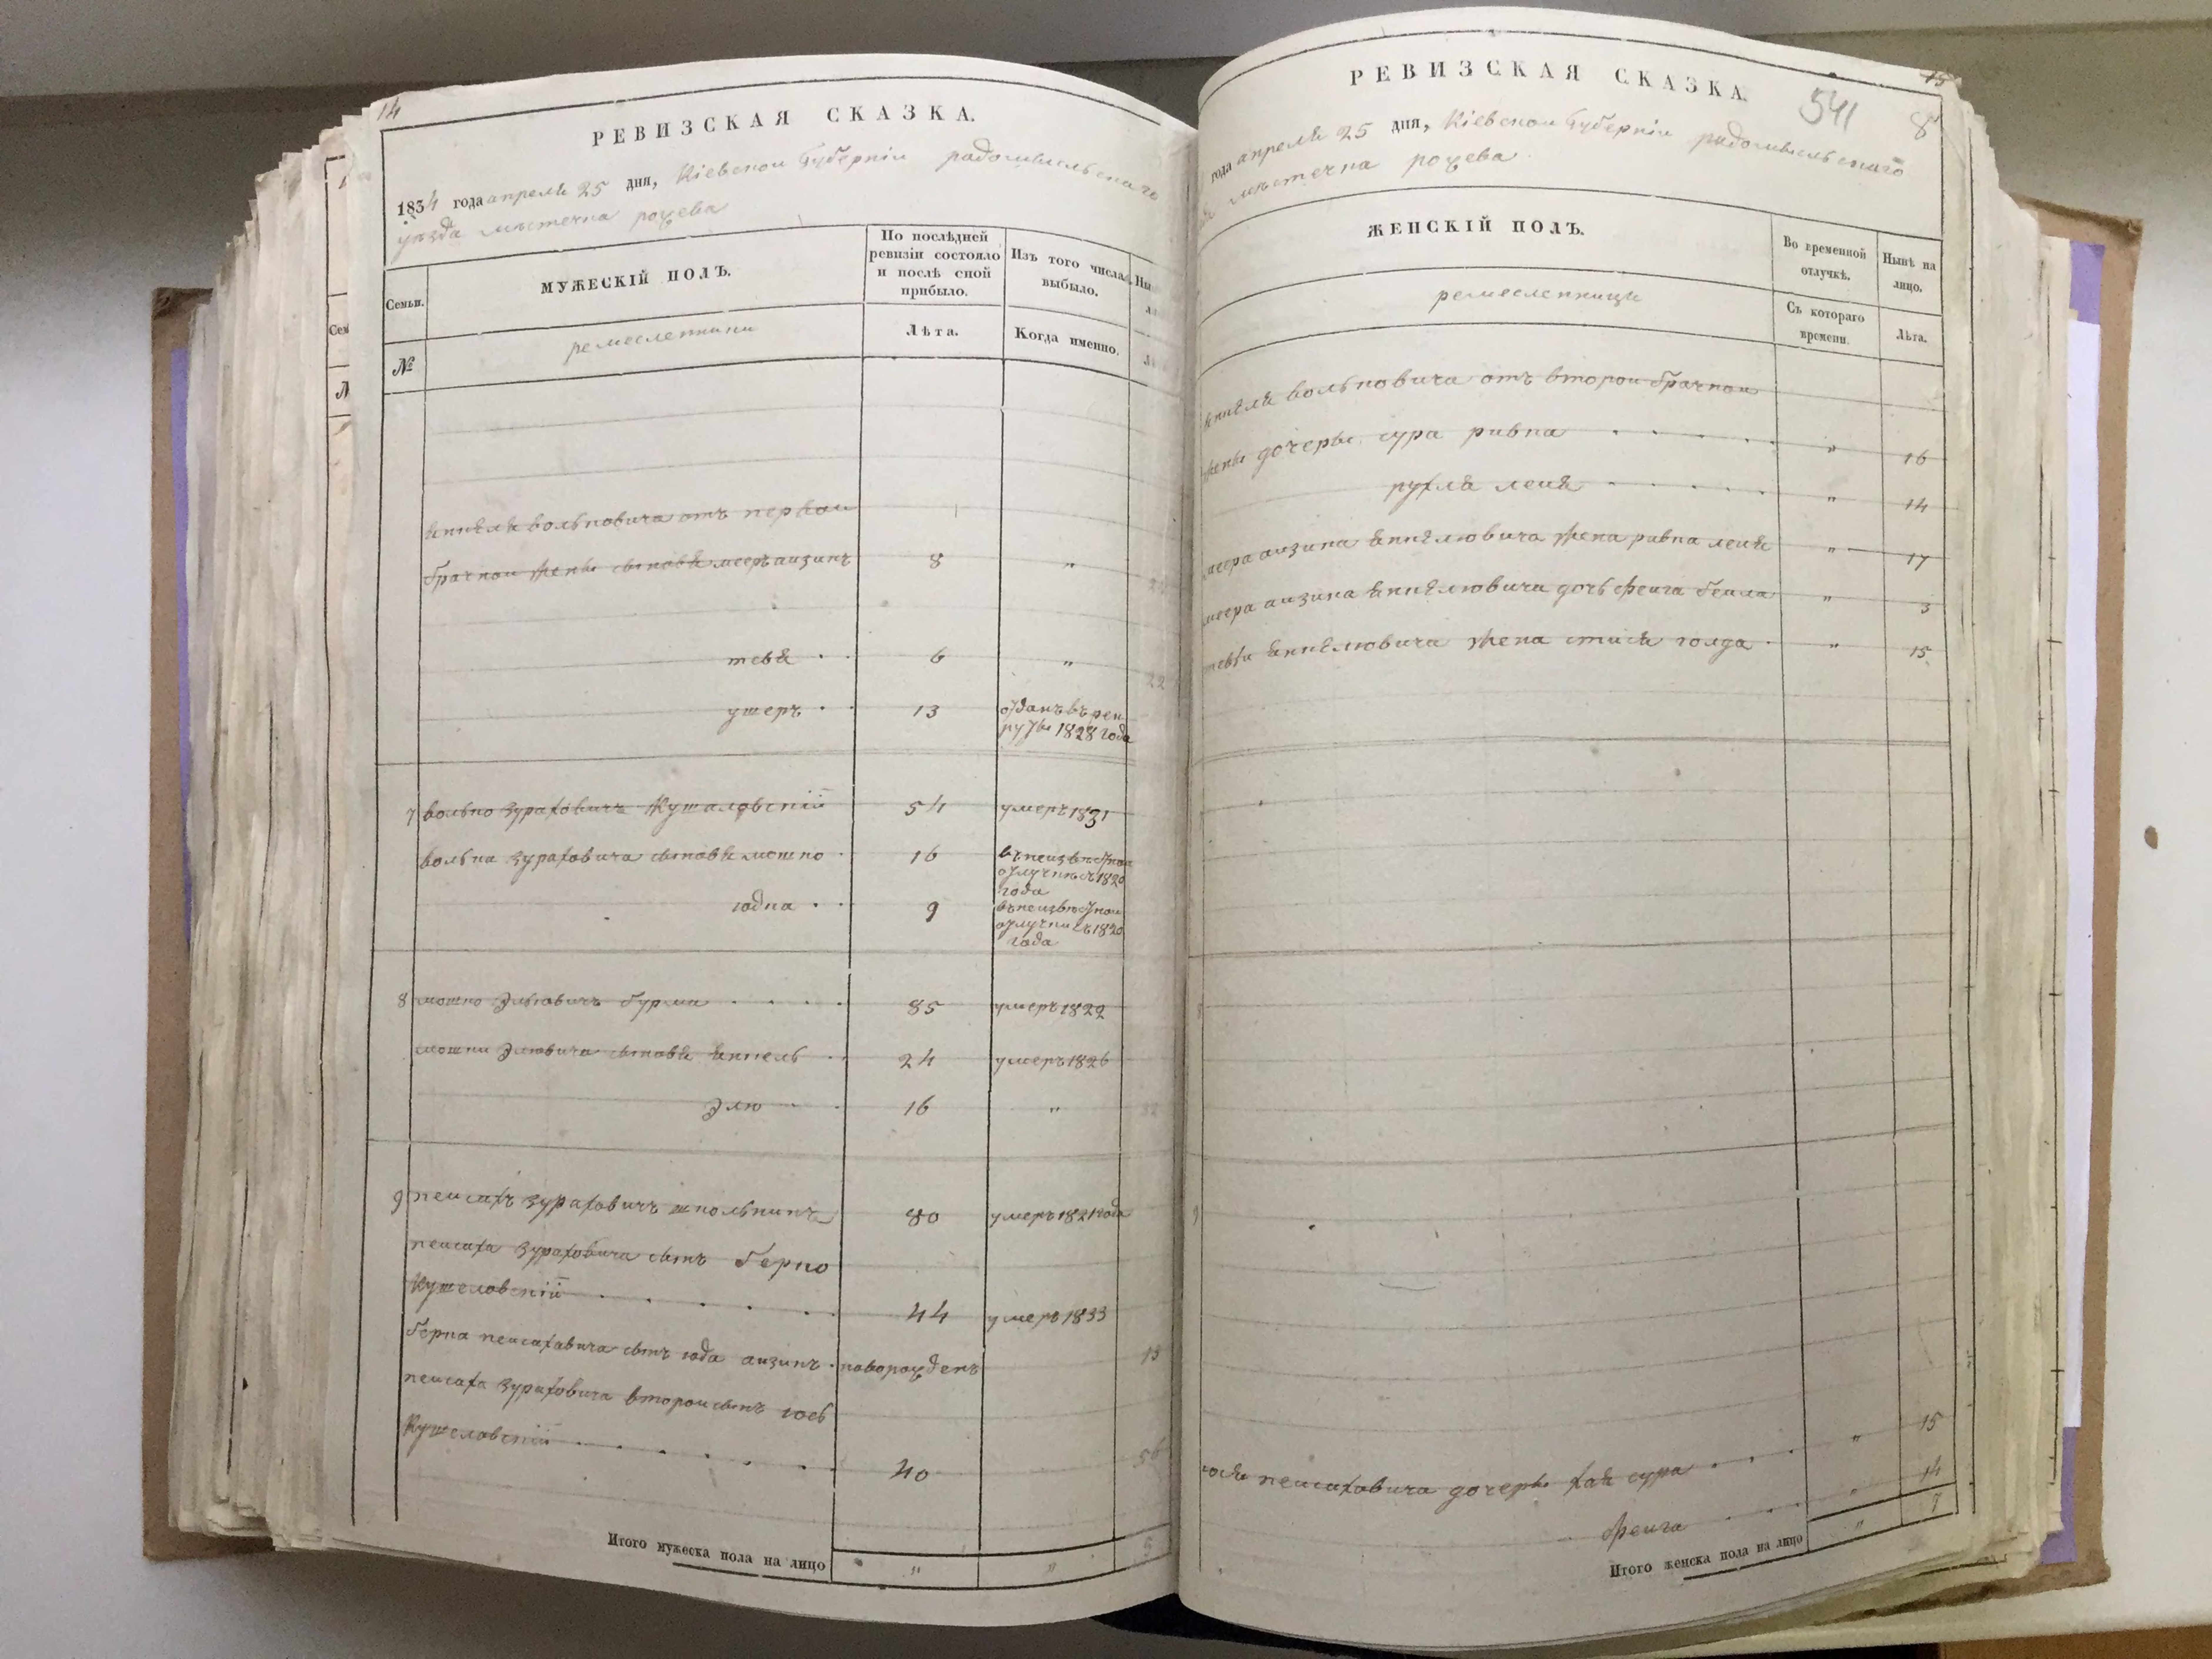 14
РЕВИЗСКАЯ СКАЗКА.
1834 года апреля 25 дня, Кіевской Губерніи радомысльскаго
уѣзда мѣстечка рожева
Семьи.
МУЖЕСКІЙ ПОЛЪ.
По послѣдней
ревизіи состояло
и послѣ сной
прибыло.
Изъ того числа
выбыло.
№
ремесленники
Лѣта.
Когда именно.
янкеля вольковича отъ первой
брачной жены сыновья меер аизикъ 8 "
тевя 6 " 22
ушеръ 13 отданъ въ рек
руты 1828 года
7 волько зураховичъ Кушаловскій 54 умеръ 1831
волька зураховича сыновья мошко 16 въ неизвестной
отлучке съ 1820
года
юдка 9 въ неизвестной
отлучки съ 1820
года
8 мошко Эльовичъ бурма 85 умеръ 1822
мошки Эловича сыновья янкель 24 умеръ 1826
Элю 16 " 32
9 пейсахъ зураховичъ школьникъ 80 умеръ 1821 года
пейсаха зураховича сынъ берко
Кушеловскій 44 умеръ 1833
берка пейсаховича сынъ юда аизикъ новорожденъ 15
пейсаха зураховича второй сынъ иось
Кушеловскій 40 56
Итого мужеска пола на лицо " " 5
15
РЕВИЗСКАЯ СКАЗКА.
541
8
года апреля 25 дня, Кіевской Губерніи радомысльскаго
мѣстечка рожева
ЖЕНСКІЙ ПОЛЪ.
Во временной
отлучкѣ.
Нынѣ на
лицо.
ремесленницы
Съ котораго
времени.
Лѣта.
янкеля вольковича отъ второй брачной
жены дочеры сура ривка " 16
рухля лея " 14
меера аизика янкелювича жена ривка лея " 17
меера аизика янкелювича дочь фейга бейла " 3
тевыи янкелювича жена стися голда " 15
9
иося пейсаховича дочеры хая сура " 15
фейга " 14
Итого женска пола на лицо " 7